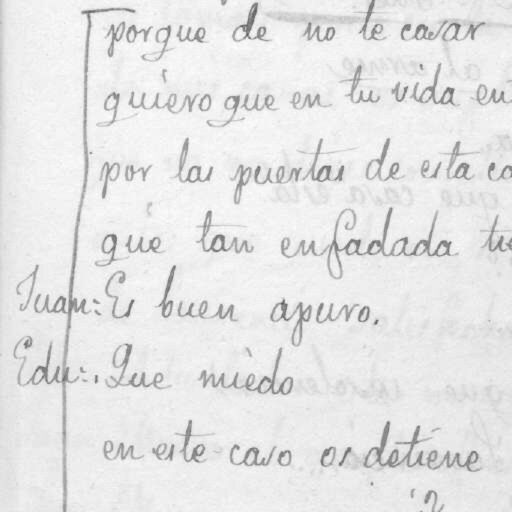 porque de no te casar
quiero que en tu vida
por las puertas de esta
qué tan enfadada
Juan: Es buen apuro.
Edu:. Que miedo
en este caso os detiene
?